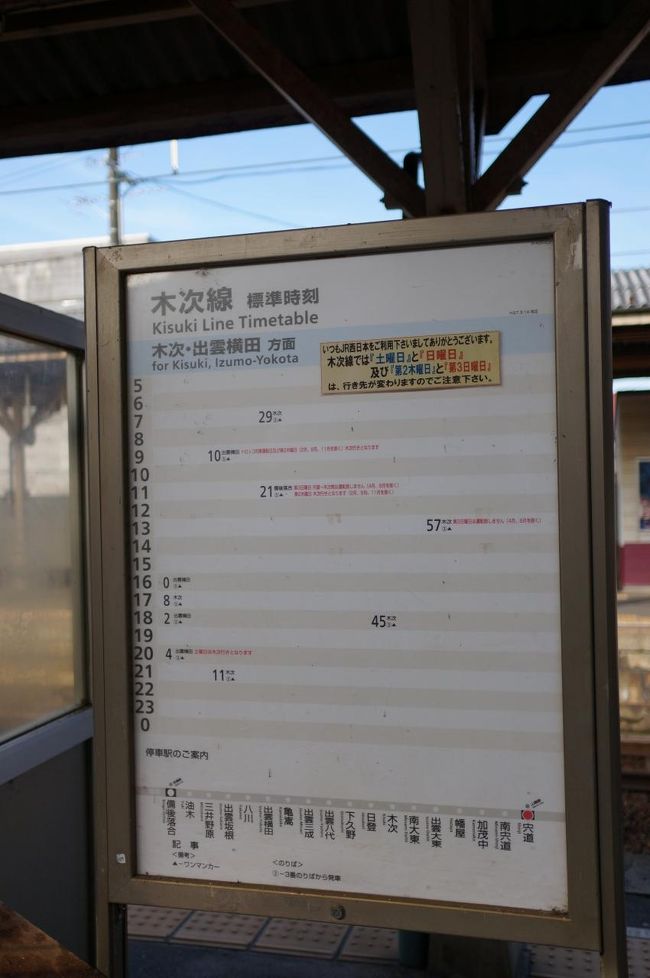 木次線 標準時刻
Kisuki Line Timetable
木次・出雲横田 方面
for Kisuki, Izumo-Yokota
いつもJR西日本をご利用下さいましてありがとうございます。
木次線では『土曜日』と『日曜日』
及び『第2木曜日』と『第3日曜日』
は、行き先が変わりますのでご注意下さい。
5
6
7 29 木次
8
9 10 出雲横田
10
11 21 備後落合
12
13 57 木次
14
15
16 0 出雲横田
17 8 木次
18 2 出雲横田 45 木次
19
20 4 出雲横田 土曜日は木次行きとなります
21 11 木次
22
23
0
停車駅のご案内
備後落合
油木
三井野原
出雲坂根
八川
出雲横田
亀嵩
出雲三成
出雲八代
下久野
日登
木次
南大東
出雲大東
幡屋
加茂中
南宍道
宍道
記 事
<備考>
▲-ワンマンカー
<のりば>
③-3番のりばから発車